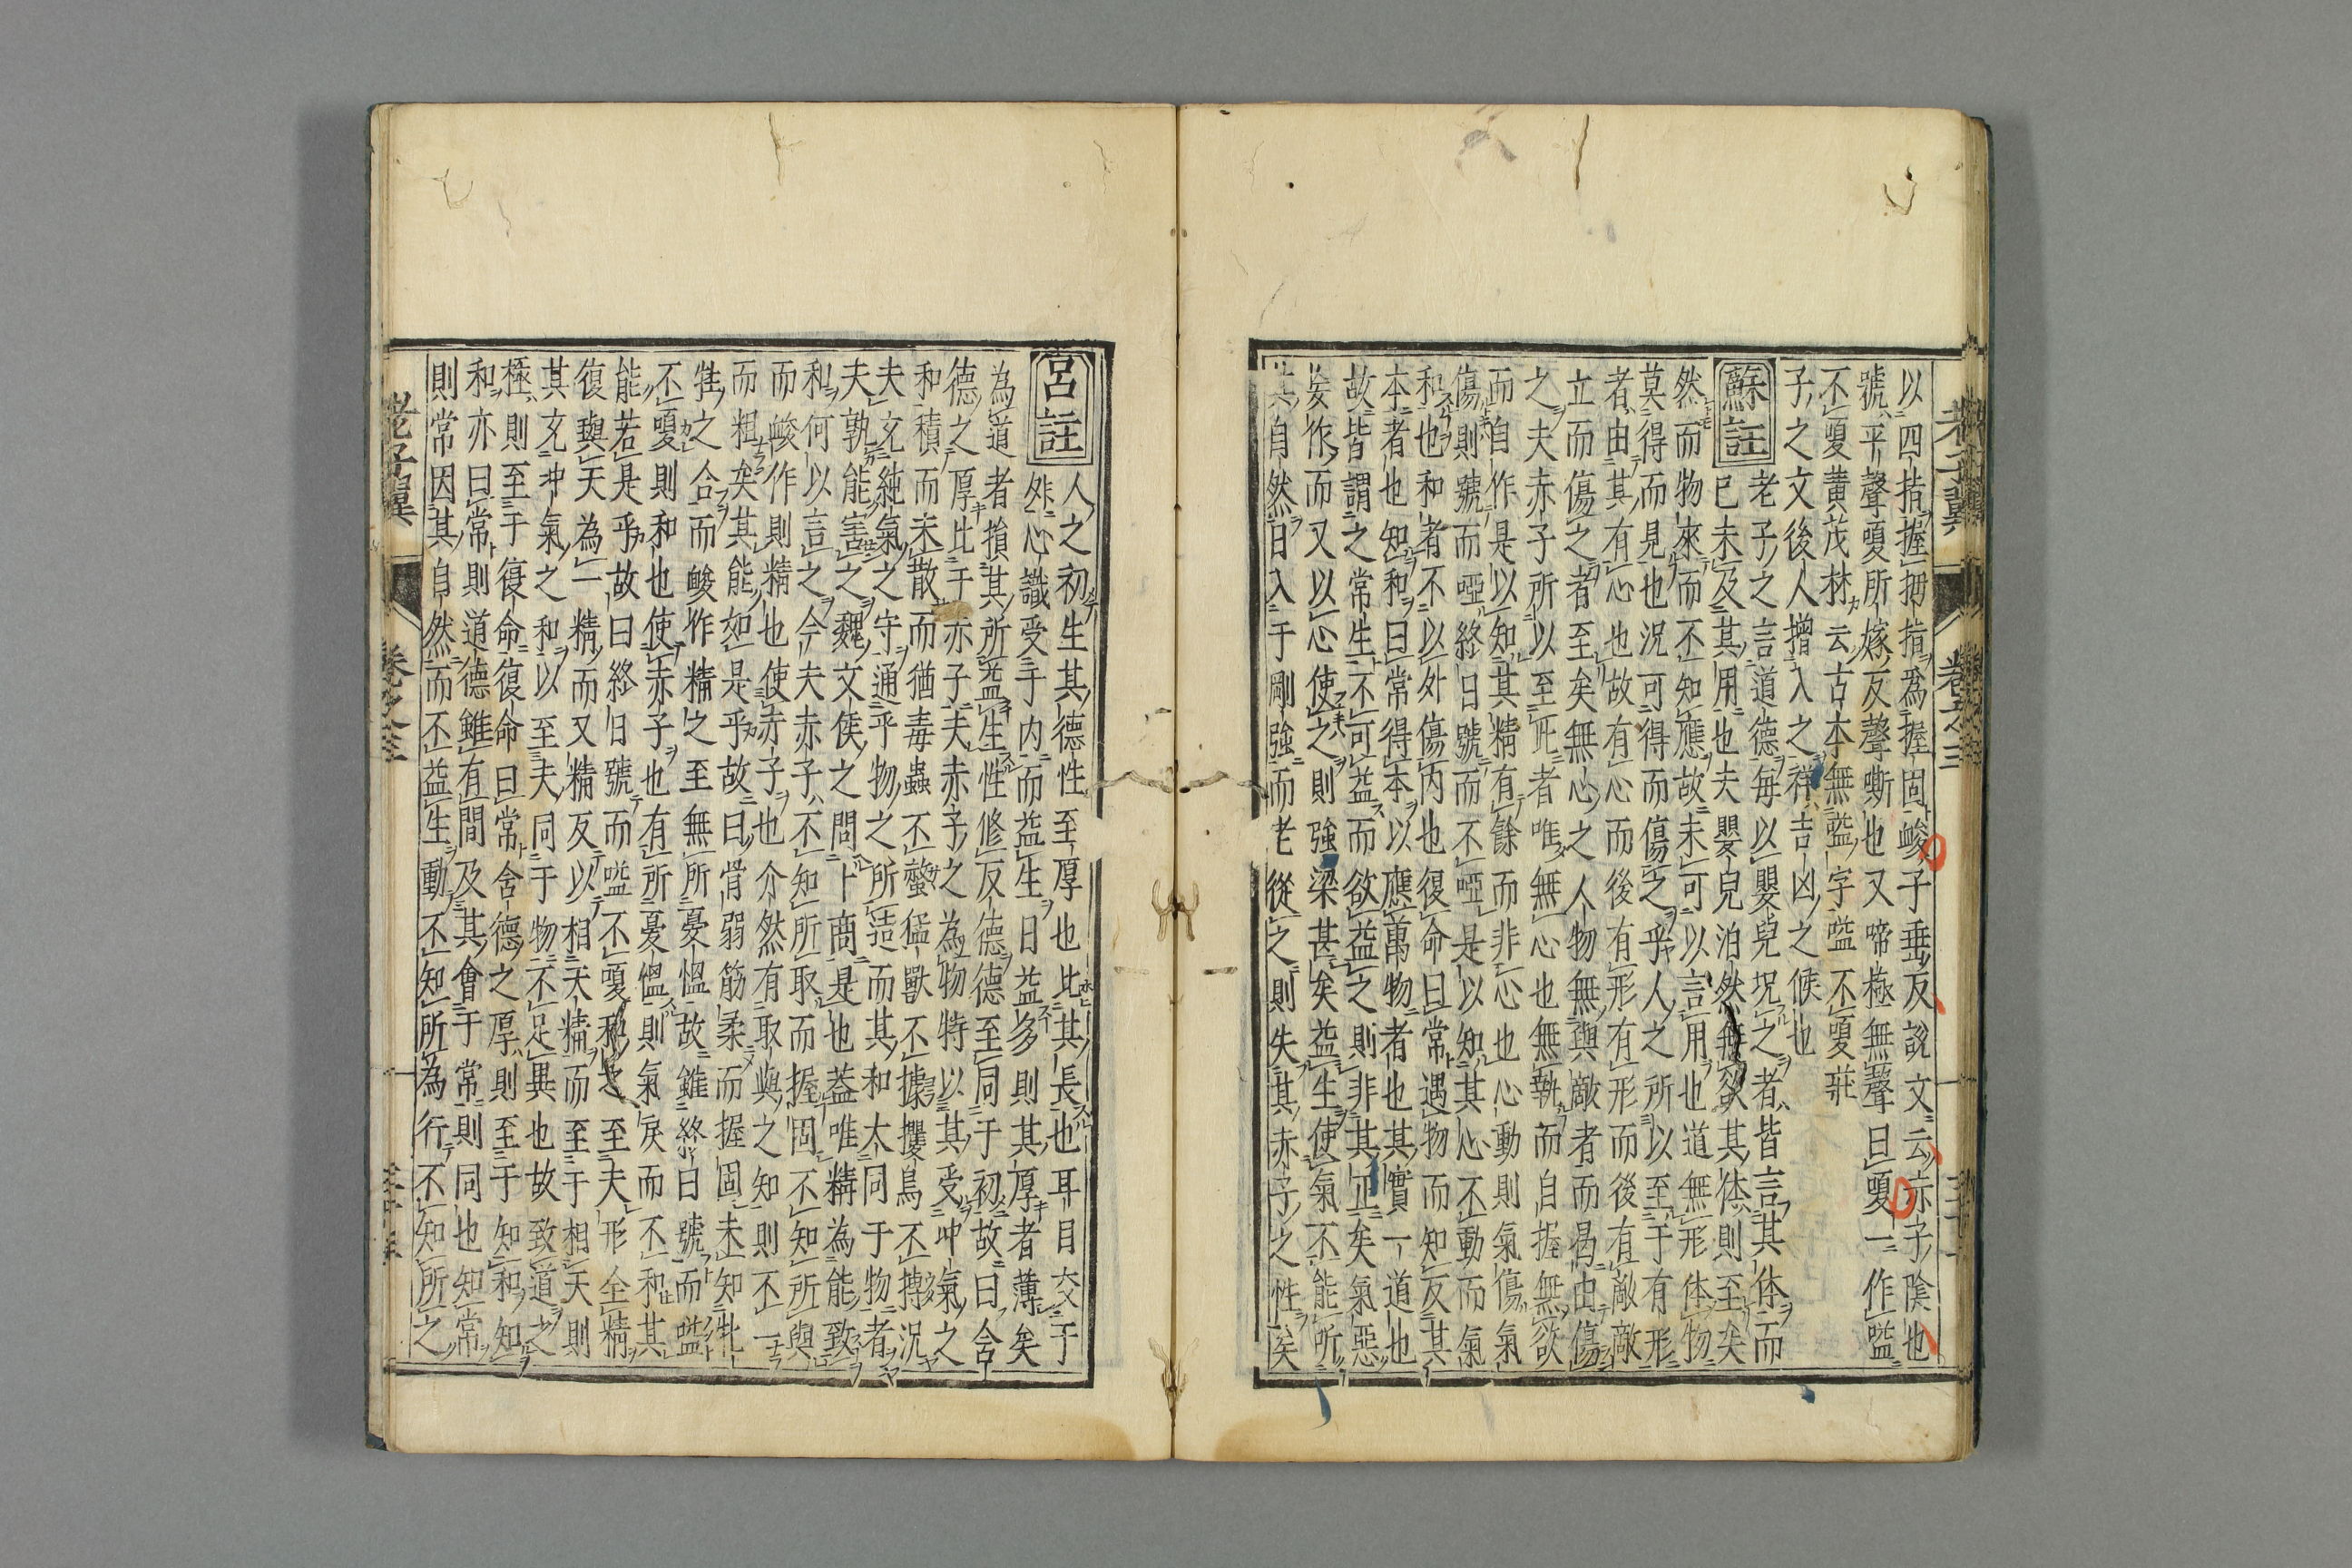 老子翼 卷之三 三十一
以四指握拇指爲握固峻子垂反説文云赤子陰也
號平聲嗄所嫁反聲嘶也又啼極無聲曰嗄一作嗌
不嗄黄茂材云古本無嗌字嗌不嗄莊
子之文後人増入之祥吉凶之候也
蘇註 老子之言道德毎以嬰兒況之者皆言其体而
已未及其用也夫嬰兒泊然無欲其体則至矣
然而物來而不知應故未可以言用也道無形体物
莫得而見也況可得而傷之乎人之所以至于有形
者由其有心也故有心而後有形有形而後有敵敵
立而傷之者至矣無心之人物無與敵者而曷由傷
之夫赤子所以至此者唯無心也無執而自握無欲
而自作是以知其精有餘而非心也心動則氣傷氣
傷則號而啞終日號而不啞是以知其心不動而氣
和也和者不以外傷内也復命曰常遇物而知反其
本者也知和曰常得本以應萬物者也其實一道也
故皆謂之常生不可益而欲益之則非其正矣氣惡
妄作而又以心使之則強梁甚矣益生使氣不能所
其自然日入于剛強而老從之則失其赤子之性矣
呂註 人之初生其德性至厚也比其長也耳目交于
外心識受于内而益生日益多則其厚者薄矣
為道者損其所益生性修反德德至同于初故曰含
德之厚比于赤子夫赤子之為物特以其受冲氣之
和積而未散而猶毒蟲不螫猛獸不據攫鳥不搏況
夫充純氣之守通乎物之所造而其和太同于物者
夫孰能害之魏文侯之問卜商是也葢唯精為能致
和何以言之今夫赤子不知所取而握固不知所與
而峻作則精也使赤子也介然有取與之知則不一
而粗矣其能如是乎故曰骨弱筋柔而握固未知牝
牡之合而峻作精之至無所憂慍故雖終日號而嗌
不嗄則和也使赤子也有所憂慍則氣戾而不和其
能若是乎故曰終日號而嗌不嗄和之至夫形全精
復與天為一精而又精反以相天精而至于相天則
其充冲氣之和以至夫同于物不足異也故致道之
極則至于復命復命曰常含德之厚則至于知和知
和亦曰常則道德雖有間及其會于常則同也知常
則常因其自然而不益生動不知所為行不知所之
老子翼 卷之三